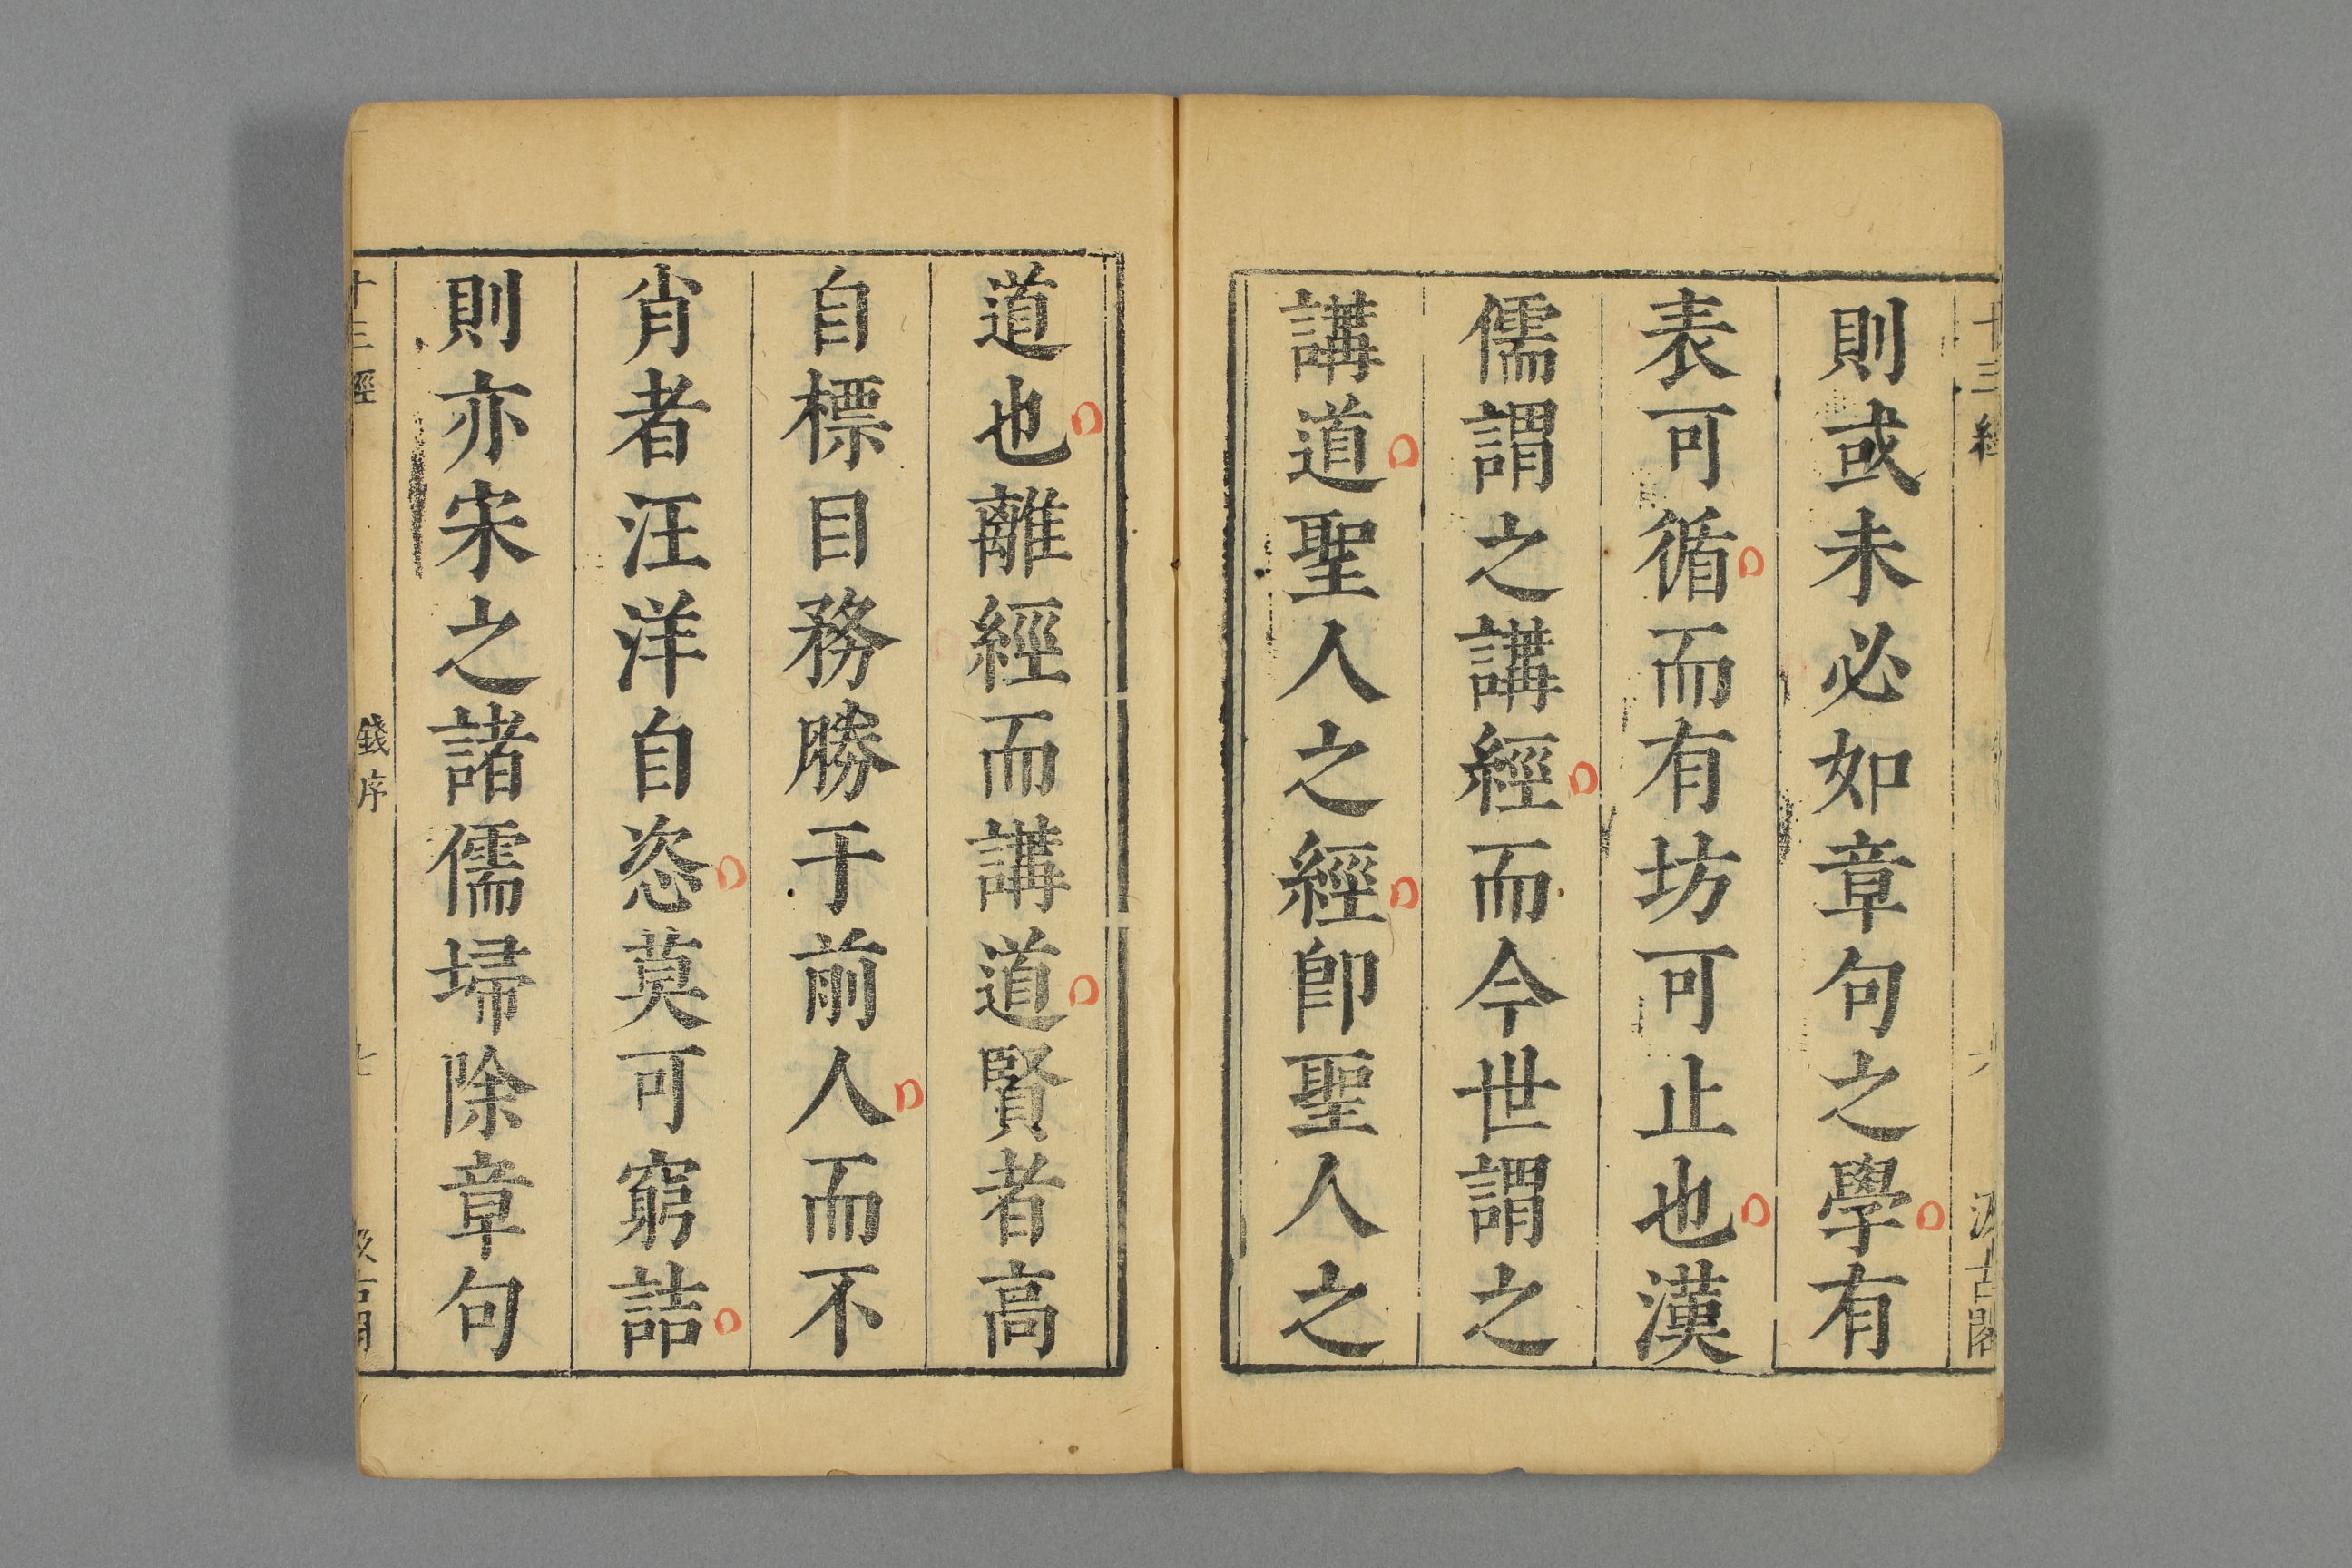 十三經 六 汲古閣
則或未必如章句之學有
表可循而有坊可止也漢
儒謂之講經而今世謂之
講道聖人之經即聖人之
道也離經而講道賢者高
自標目務勝于前人而不
肖者汪洋自恣莫可窮詰
則亦宋之諸儒埽除章句
十三經 錢序 七 汲古閣